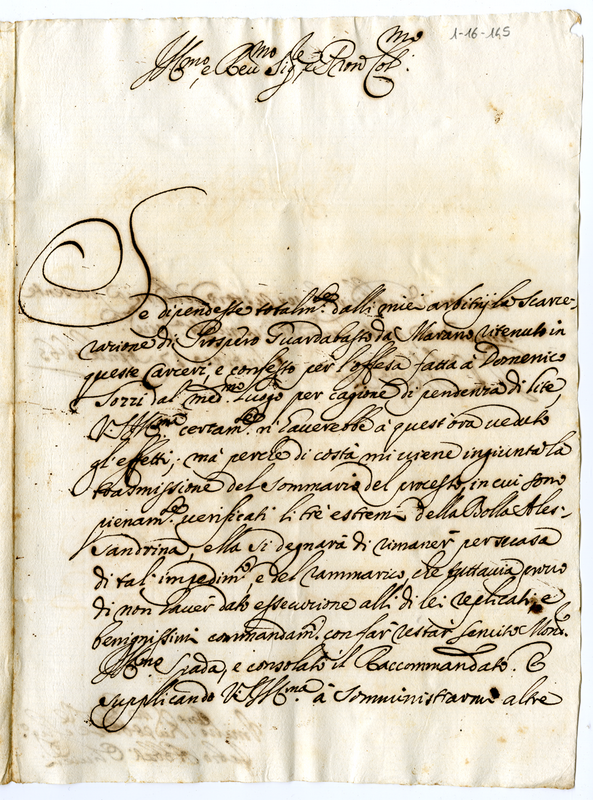 1-16-145
Ill.mo e Reu.mo Sig.re e Pron Col.mo
Se dipendesse totalm.te dalli miei arbitrij la scarce-
razione di Prospero Guardabasso da Marano ritenuto in
queste Carceri, e confesso per l'offesa fatta à Domenico
Tozzi dal med.mo Luogo per cagione di pendenza di lite,
V.S. Ill.ma certam.te n'hauerebbe à quest'ora ueduto
gl'effetti; mà perche di costà mi uiene ingiunta la
trasmissione del Sommario del processo, in cui sono
pienam.te uerificati li trè estremi della Bolla Ales-
sandrina, ella si degnarà di rimaner persuasa
di tal' impedim.to, e del rammarico, che tuttauia prouo
di non hauer dato essecuzione alli di lei replicati, e
benignissimi commandam.ti con far restar seruito Mons.
Ill.mo Spada, e consolato il Raccommandato. E
supplicando V.S. Ill.ma à somministrarmi altre